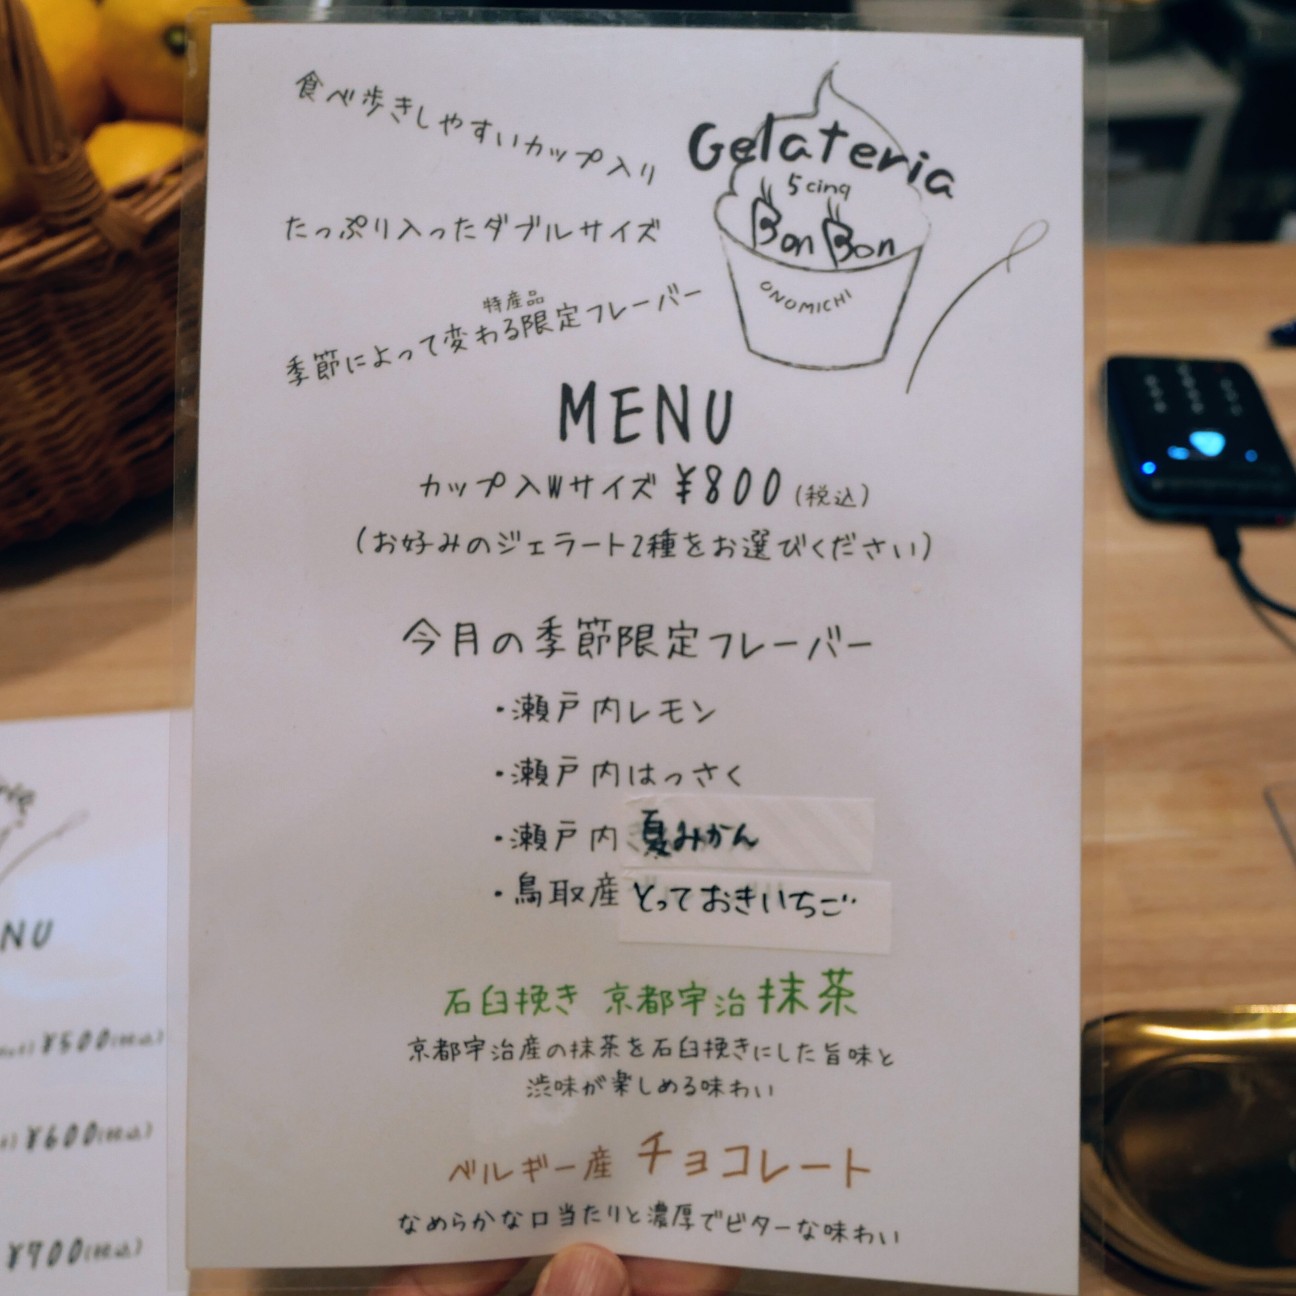 食べ歩きしやすいカップ入り
たっぷり入ったダブルサイズ
特産品
季節によって変わる限定フレーバー
Gelateria
5 cinq
Bon Bon
ONOMICHI
MENU
カップ入Wサイズ ¥800(税込)
(お好みのジェラート2種をお選びください)
今月の季節限定フレーバー
・瀬戸内レモン
・瀬戸内はっさく
・瀬戸内 夏みかん
・鳥取産 とっておきいちご
石臼挽き 京都宇治抹茶
京都宇治産の抹茶を石臼挽きにした旨味と
渋味が楽しめる味わい
ベルギー産 チョコレート
なめらかな口当たりと濃厚でビターな味わい
NU
¥500(税込)
¥600(税込)
¥700(税込)